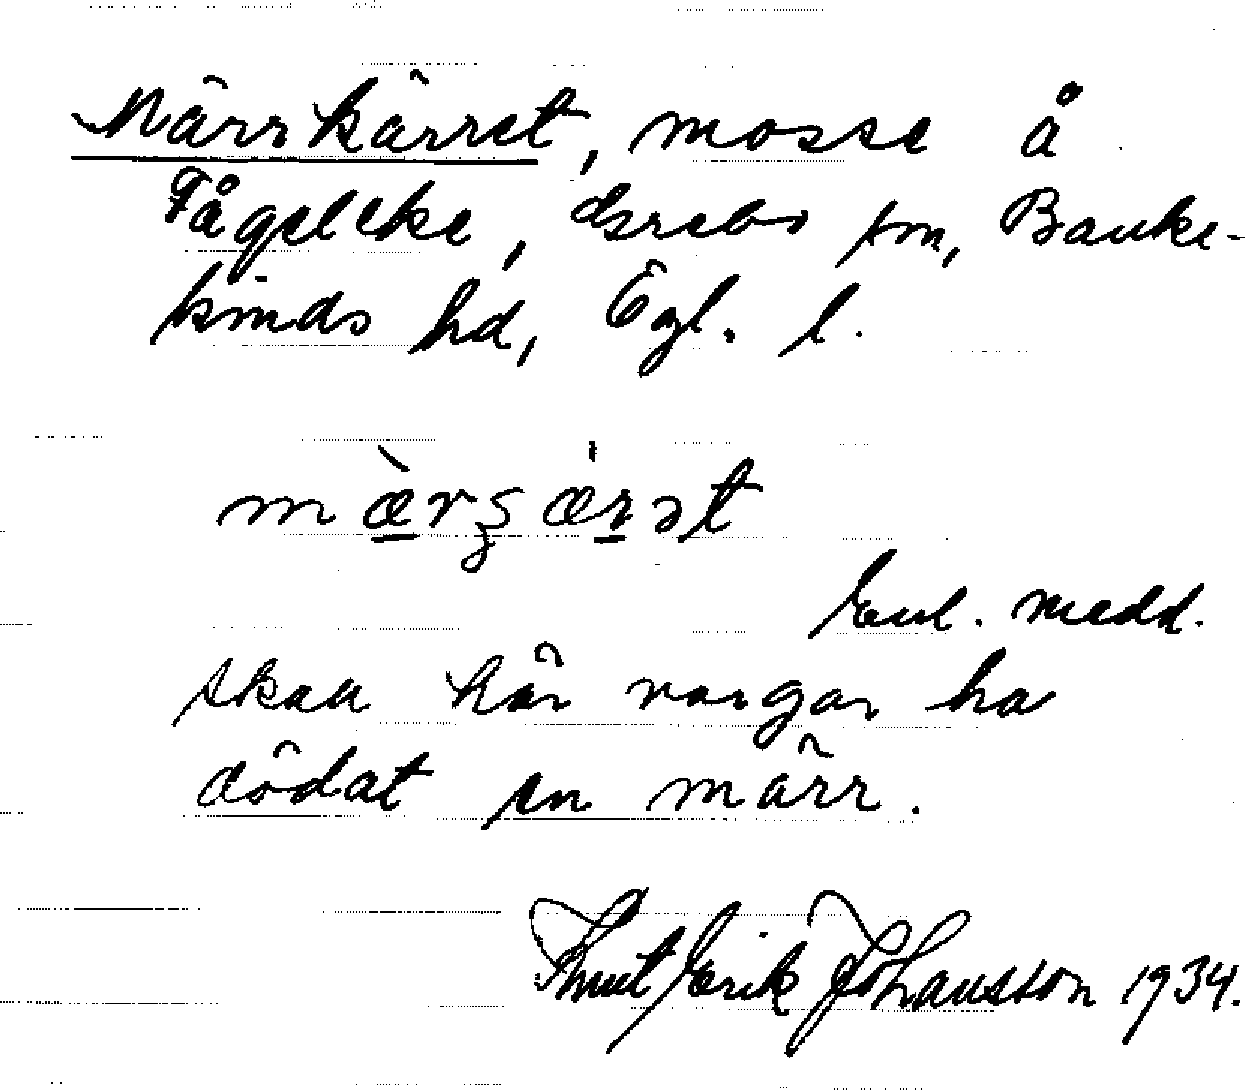 Märrkärret, mosse å
Fågeleke, Grebo sn, Banke-
kinds hd, Ögl. l.
mærʒærət
Enl. medd.
skall här vargar ha
dödat en märr.
Knut Erik Johansson 1934.